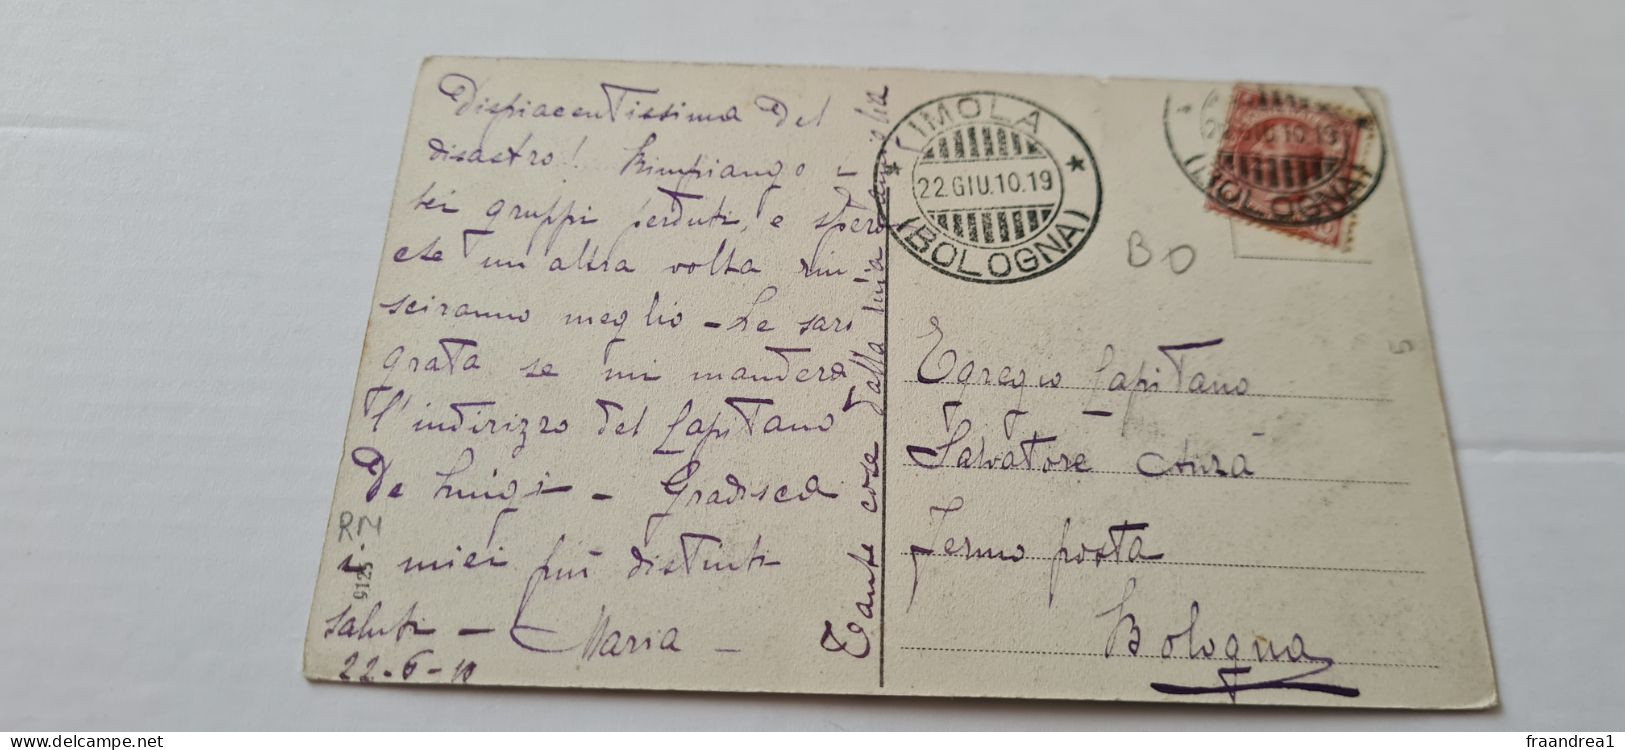 Dispiacentissima del
disastro! Rimpiango i
bei gruppi perduti, e spero
che un'altra volta riu-
sciranno meglio - Le sarò
grata se mi manderà
l'indirizzo del Capitano
De Luigi - Gradisca
i miei più distinti
saluti - Maria -
22-6-10
Tante cose dalla mia famiglia
RM
9125
IMOLA
22.GIU.10.19
(BOLOGNA)
IMOLA
22.GIU.10.19
(BOLOGNA)
BO
Egregio Capitano
Salvatore
Fermo posta
Bologna
delcampe.net
fraandrea1